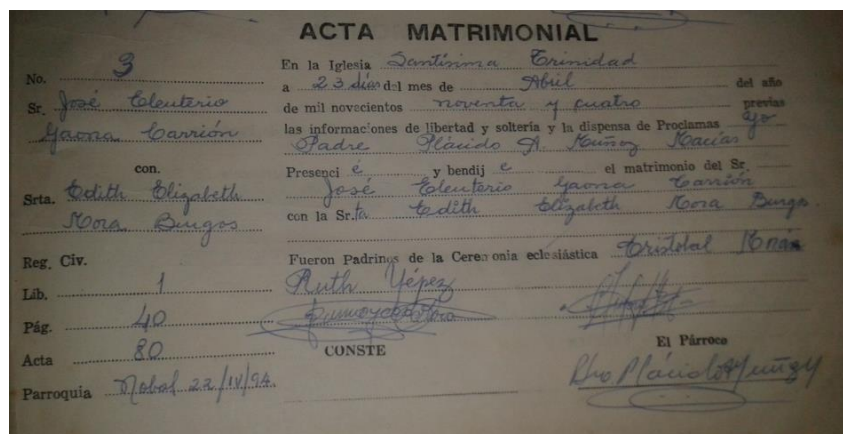 ACTA MATRIMONIAL
No. 3
Sr. José Eleuterio
Gaona Carrión
con.
Srta. Edith Elizabeth
Mora Burgos
Reg. Civ.
Lib. 1
Pág. 40
Acta 80
Parroquia Nobol 22/IV/94.
En la Iglesia Santísima Trinidad
a 23 días del mes de Abril del año
de mil novecientos noventa y cuatro previas
las informaciones de libertad y soltería y la dispensa de Proclamas Yo
Padre Plácido A. Muñoz Macías
Presenci é y bendij e el matrimonio del Sr.
José Eleuterio Gaona Carrión
con la Sr.ta Edith Elizabeth Mora Burgos.
Fueron Padrinos de la Ceremonia eclesiástica Cristobal
Ruth Yépez
CONSTE
El Párroco
Plácido